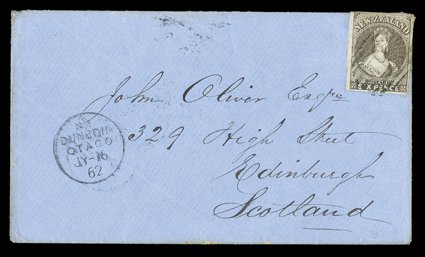 NEW ZEALAND
SIXPENCE
John Oliver Esqre
329 High Street
Edinburgh
Scotland
DUNEDIN
OTAGO
JY-16
62